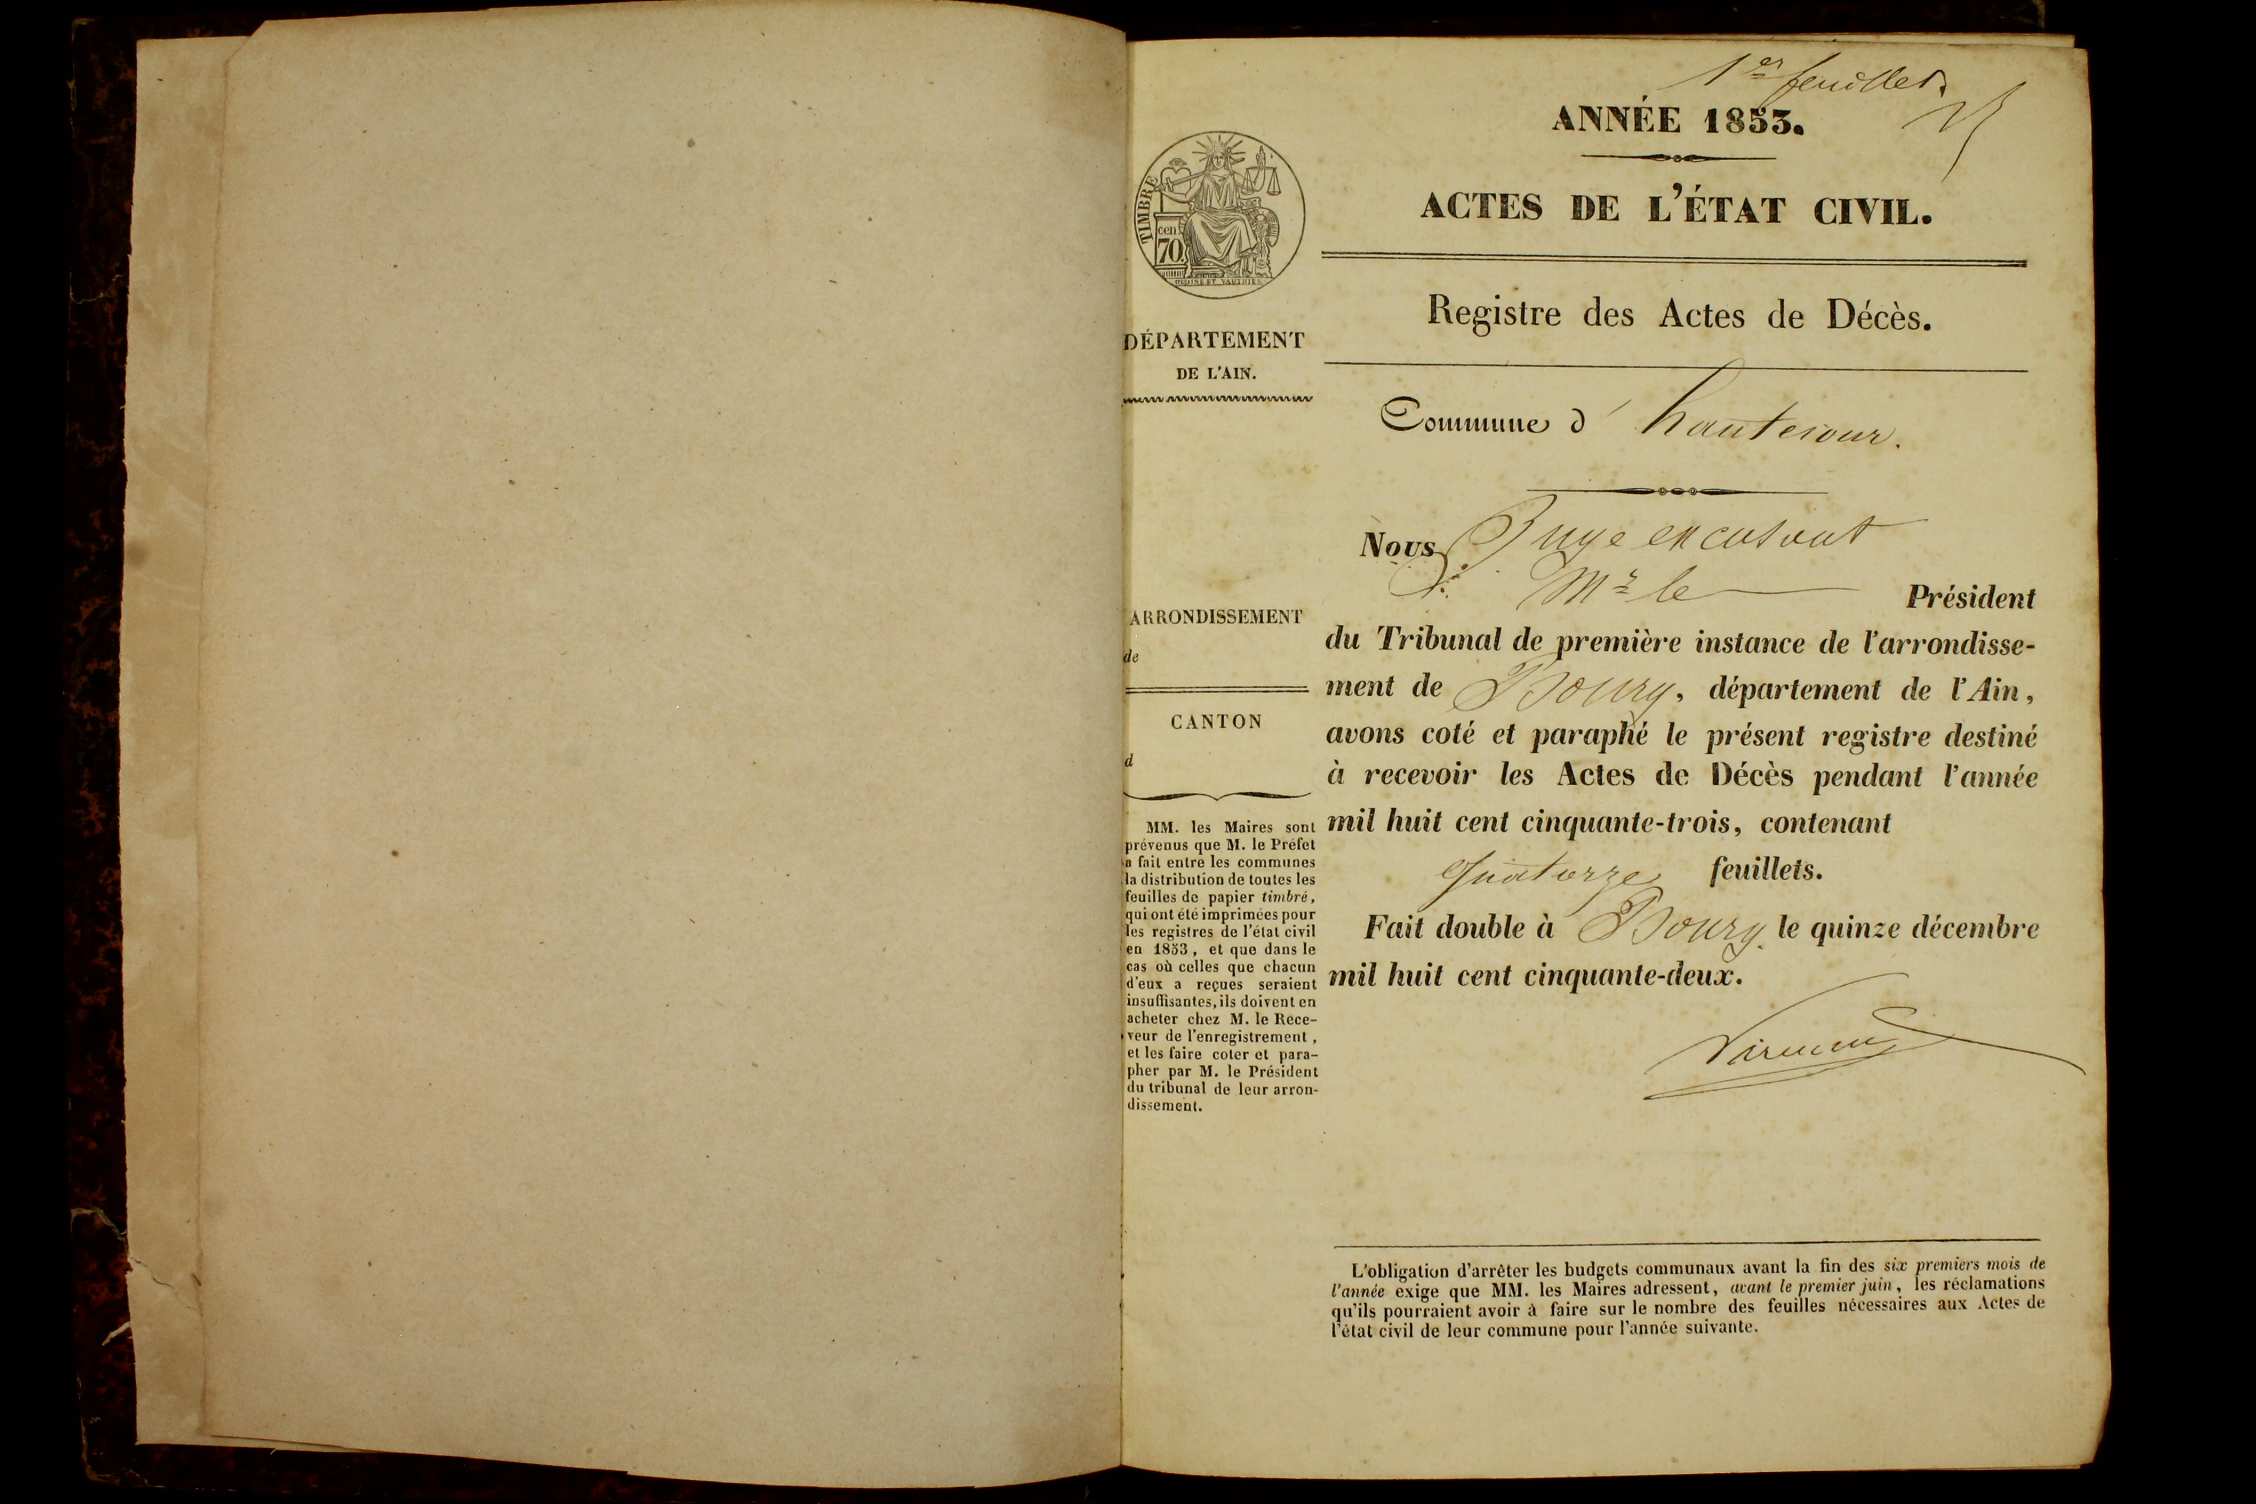 1er feuillet.
ANNÉE 1853.
ACTES DE L'ÉTAT CIVIL.
Registre des Actes de Décès.
Commune d'hautecour.
Nous, Juge excusant
Mr le Président
du Tribunal de première instance de l'arrondisse-
ment de Bourg, département de l'Ain,
avons coté et paraphé le présent registre destiné
à recevoir les Actes de Décès pendant l'année
mil huit cent cinquante-trois, contenant
quatorze feuillets.
Fait double à Bourg, le quinze décembre
mil huit cent cinquante-deux.
L'obligation d'arrêter les budgets communaux avant la fin des six premiers mois de
l'année exige que MM. les Maires adressent, avant le premier juin, les réclamations
qu'ils pourraient avoir à faire sur le nombre des feuilles nécessaires aux Actes de
l'état civil de leur commune pour l'année suivante.
TIMBRE
cen
70
DÉPARTEMENT
DE L'AIN.
ARRONDISSEMENT
de
CANTON
d
MM. les Maires sont
prévenus que M. le Préfet
a fait entre les communes
la distribution de toutes les
feuilles de papier timbré,
qui ont été imprimées pour
les registres de l'état civil
en 1853, et que dans le
cas où celles que chacun
d'eux a reçues seraient
insuffisantes, ils doivent en
acheter chez M. le Rece-
veur de l'enregistrement,
et les faire coter et para-
pher par M. le Président
du tribunal de leur arron-
dissement.